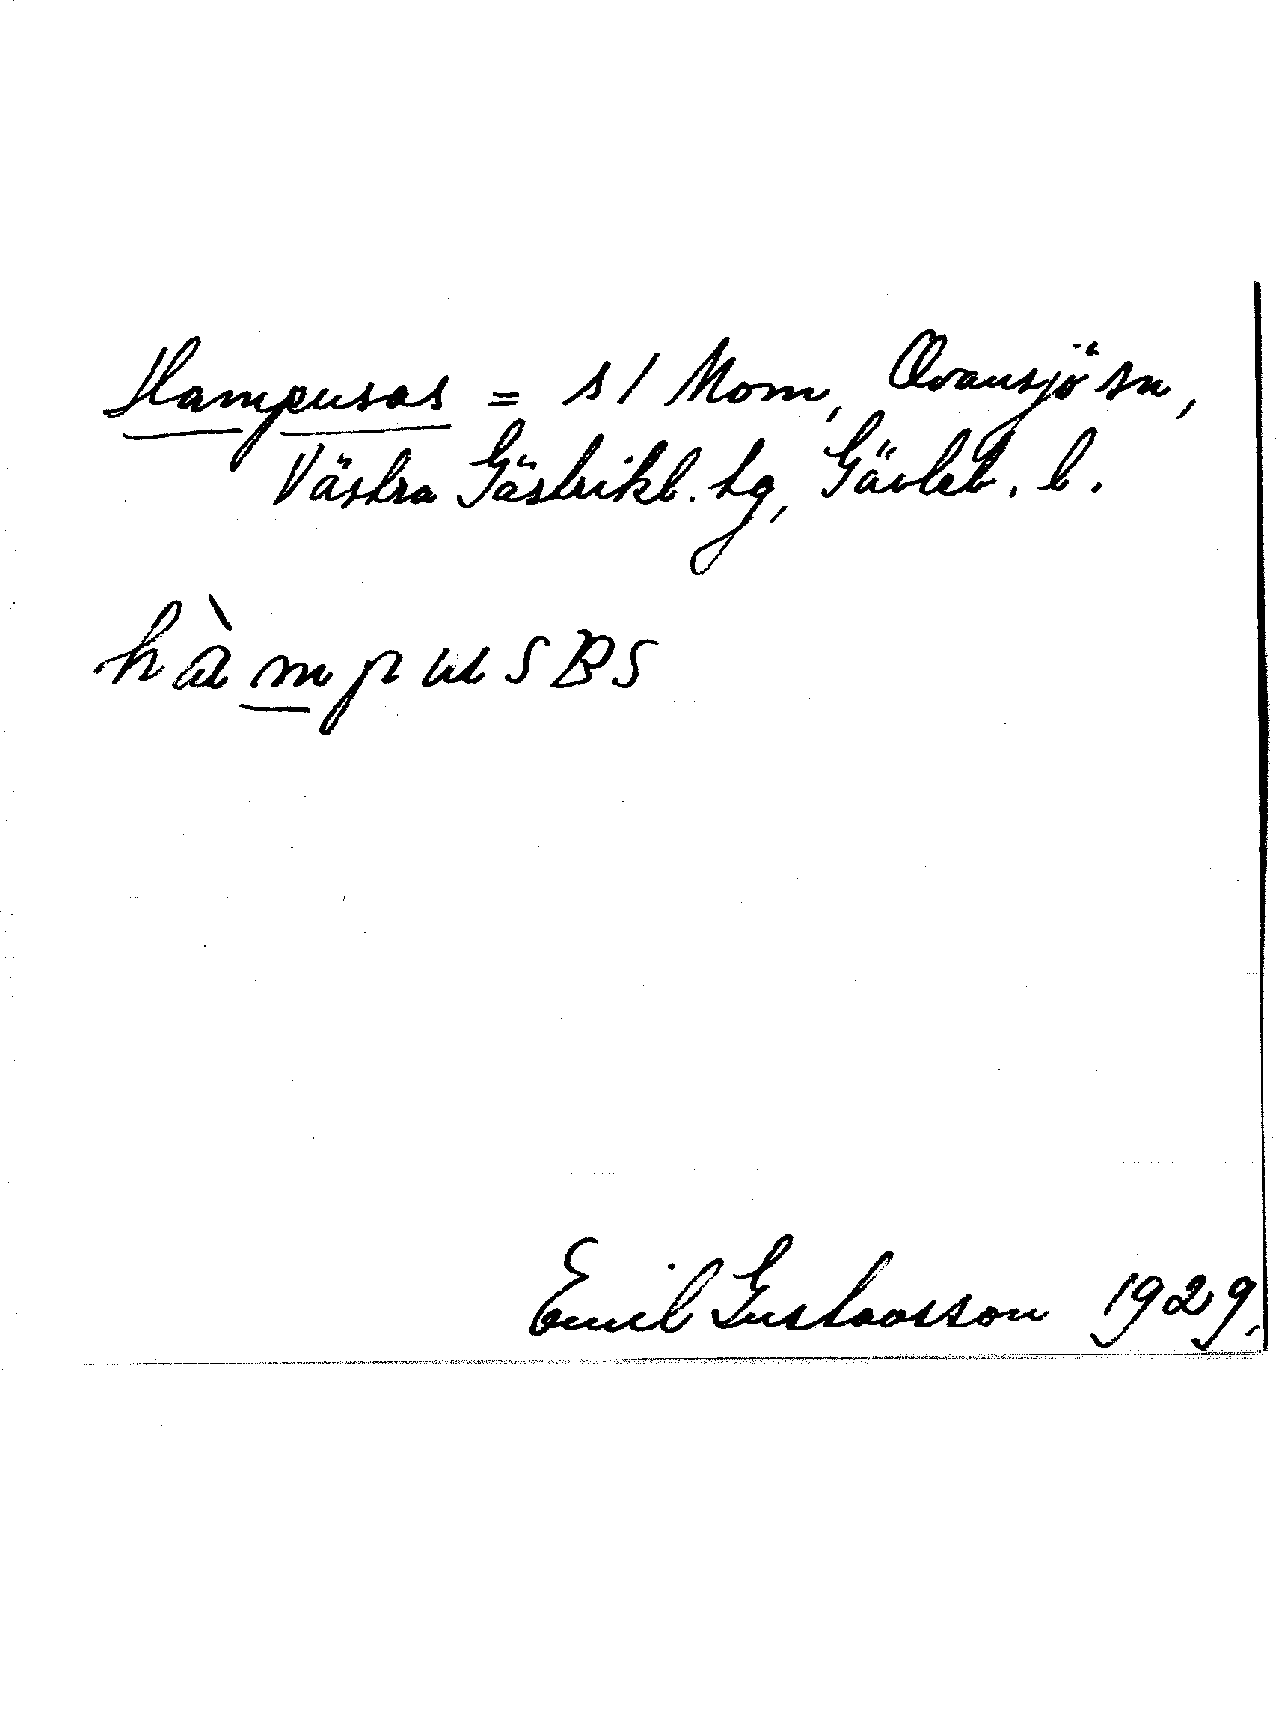 Hampusas = s/ Mom, Ovansjö sn,
Västra Gästrikl. tg, Gävleb. l.
hàmpusBS
Emil Gustavsson 1929.